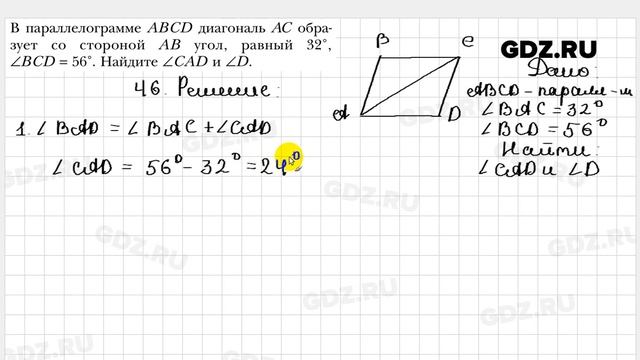 В параллелограмме ABCD диагональ AC обра-
зует со стороной AB угол, равный 32°,
∠BCD = 56°. Найдите ∠CAD и ∠D.
46. Решение:
1. ∠ BAD = ∠ BAC + ∠CAD
∠ CAD = 56° - 32° = 24°
B
C
A
D
GDZ.RU
Дано:
ABCD - паралл-м
∠ BAC = 32°
∠ BCD = 56°
Найти:
∠ CAD и ∠D
GDZ.RU
GDZ.RU
GDZ.RU
GDZ.RU
GDZ.RU